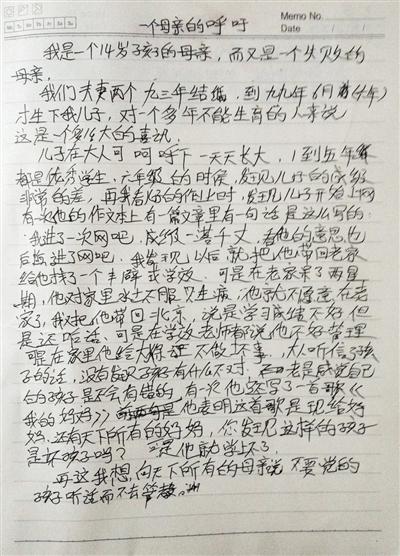 Memo No.
Date / /
一个母亲的呼吁
我是一个14岁孩子的母亲，而又是一个失败的
母亲。
我们夫妻两个九三年结婚，到九九年6月
才生下我儿子，对一个多年不能生育的人来说
这是一个多么大的喜讯。
儿子在大人呵呵呼下一天天长大，1到五年级
都是优秀学生，六年级的时候，发现儿子的成绩
非常的差，再我看他的作业时，发现儿子开始上网
有次他的作文本上有一篇文章里有一句话是这么写的：
我进了一次网吧，成绩一落千丈，看他的意思也
后悔进了网吧。我发现以后就把他带回老家
给他找了一个半封闭学校。可是在老家呆了两星
期，他对家里水土不服只生病，他就不愿意在老
家了，我又把他带回北京，说是学习成绩不好但
是还好，可是在学校老师都说他不好管理
可是在家里他给大人保证不做坏事，大人听信了孩
子的话，没有发现孩子有什么不对，老是感觉自己
的孩子是不会有错的，有次他还写了一首歌《
我的妈妈》他表明这首歌是献给妈
妈，还有天下所有的妈妈，你发现这样的孩子
是坏孩子吗？于是他就学坏了。
再这我想向天下所有的母亲说不要觉的
孩子听话而不去管教。